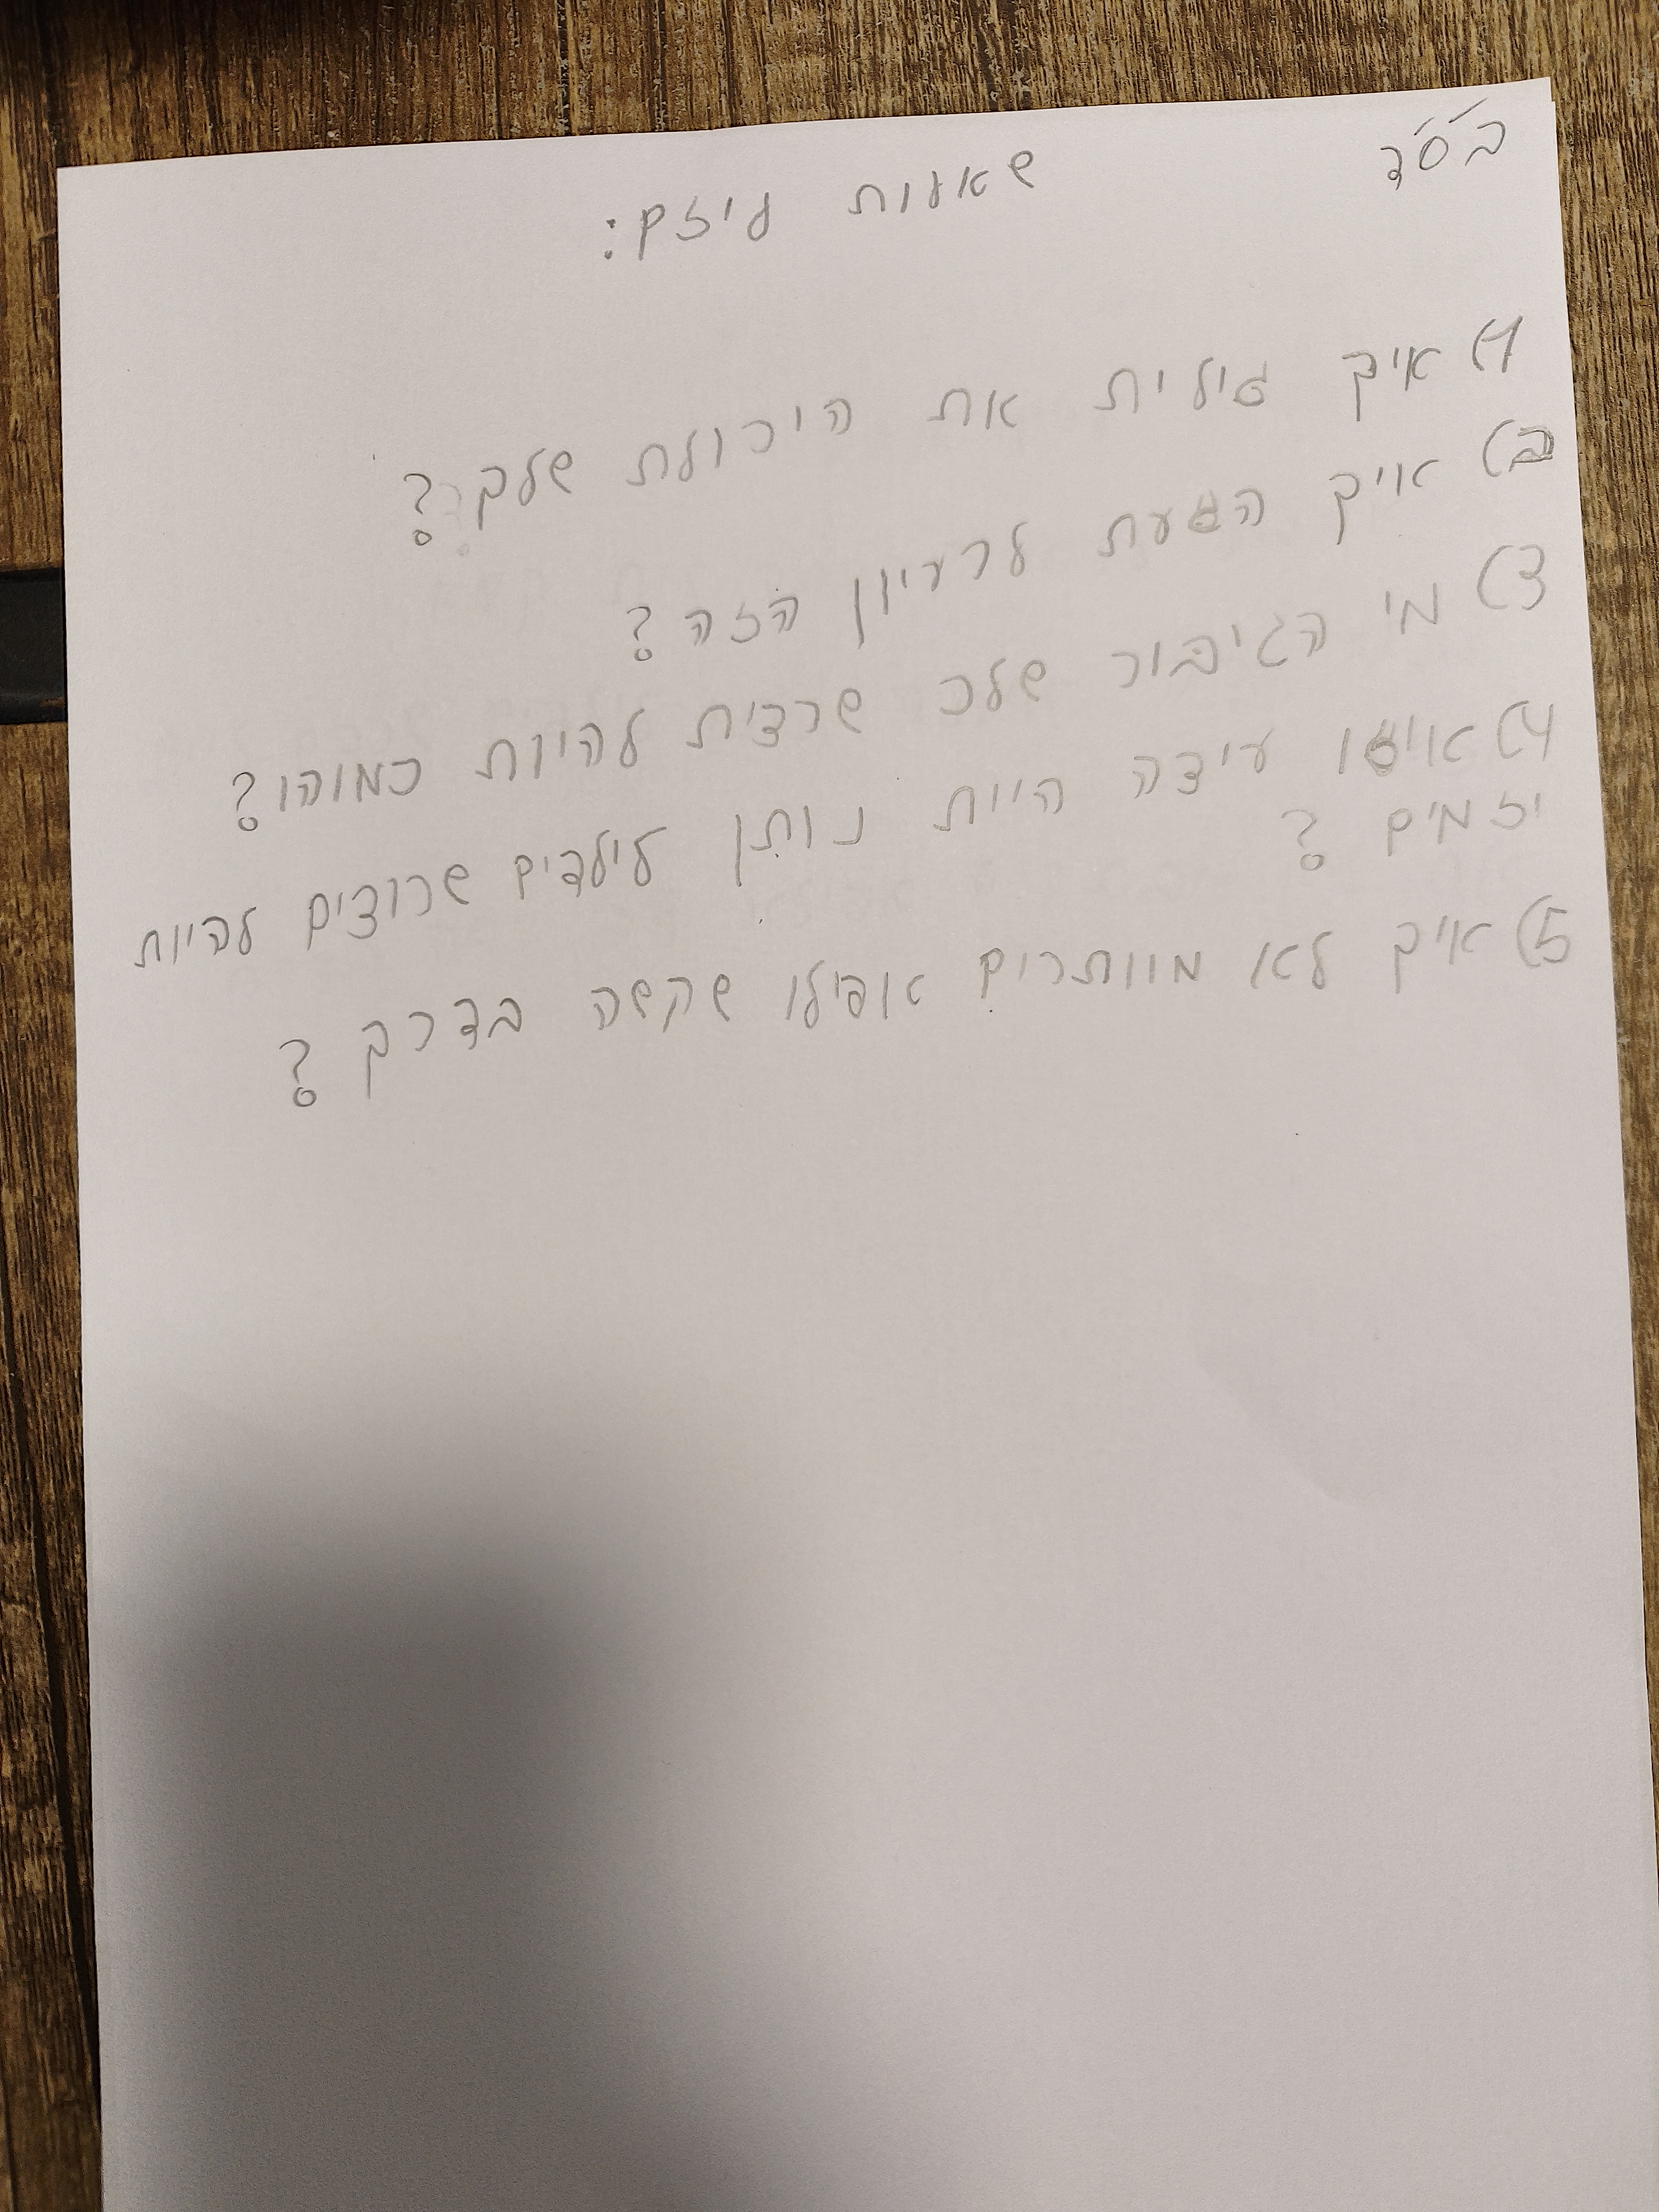 בס"ד
שאלות ליזם:
1) איך גילית את היכולת שלך?
ב) איך הגעת לרעיון הזה?
3) מי הגיבור שלכ שרצית להיות כמוהו?
4) איזו עיצה היית נותן לילדים שרוצים להיות
יזמים?
5) איך לא מוותרים אפילו שקשה בדרך?